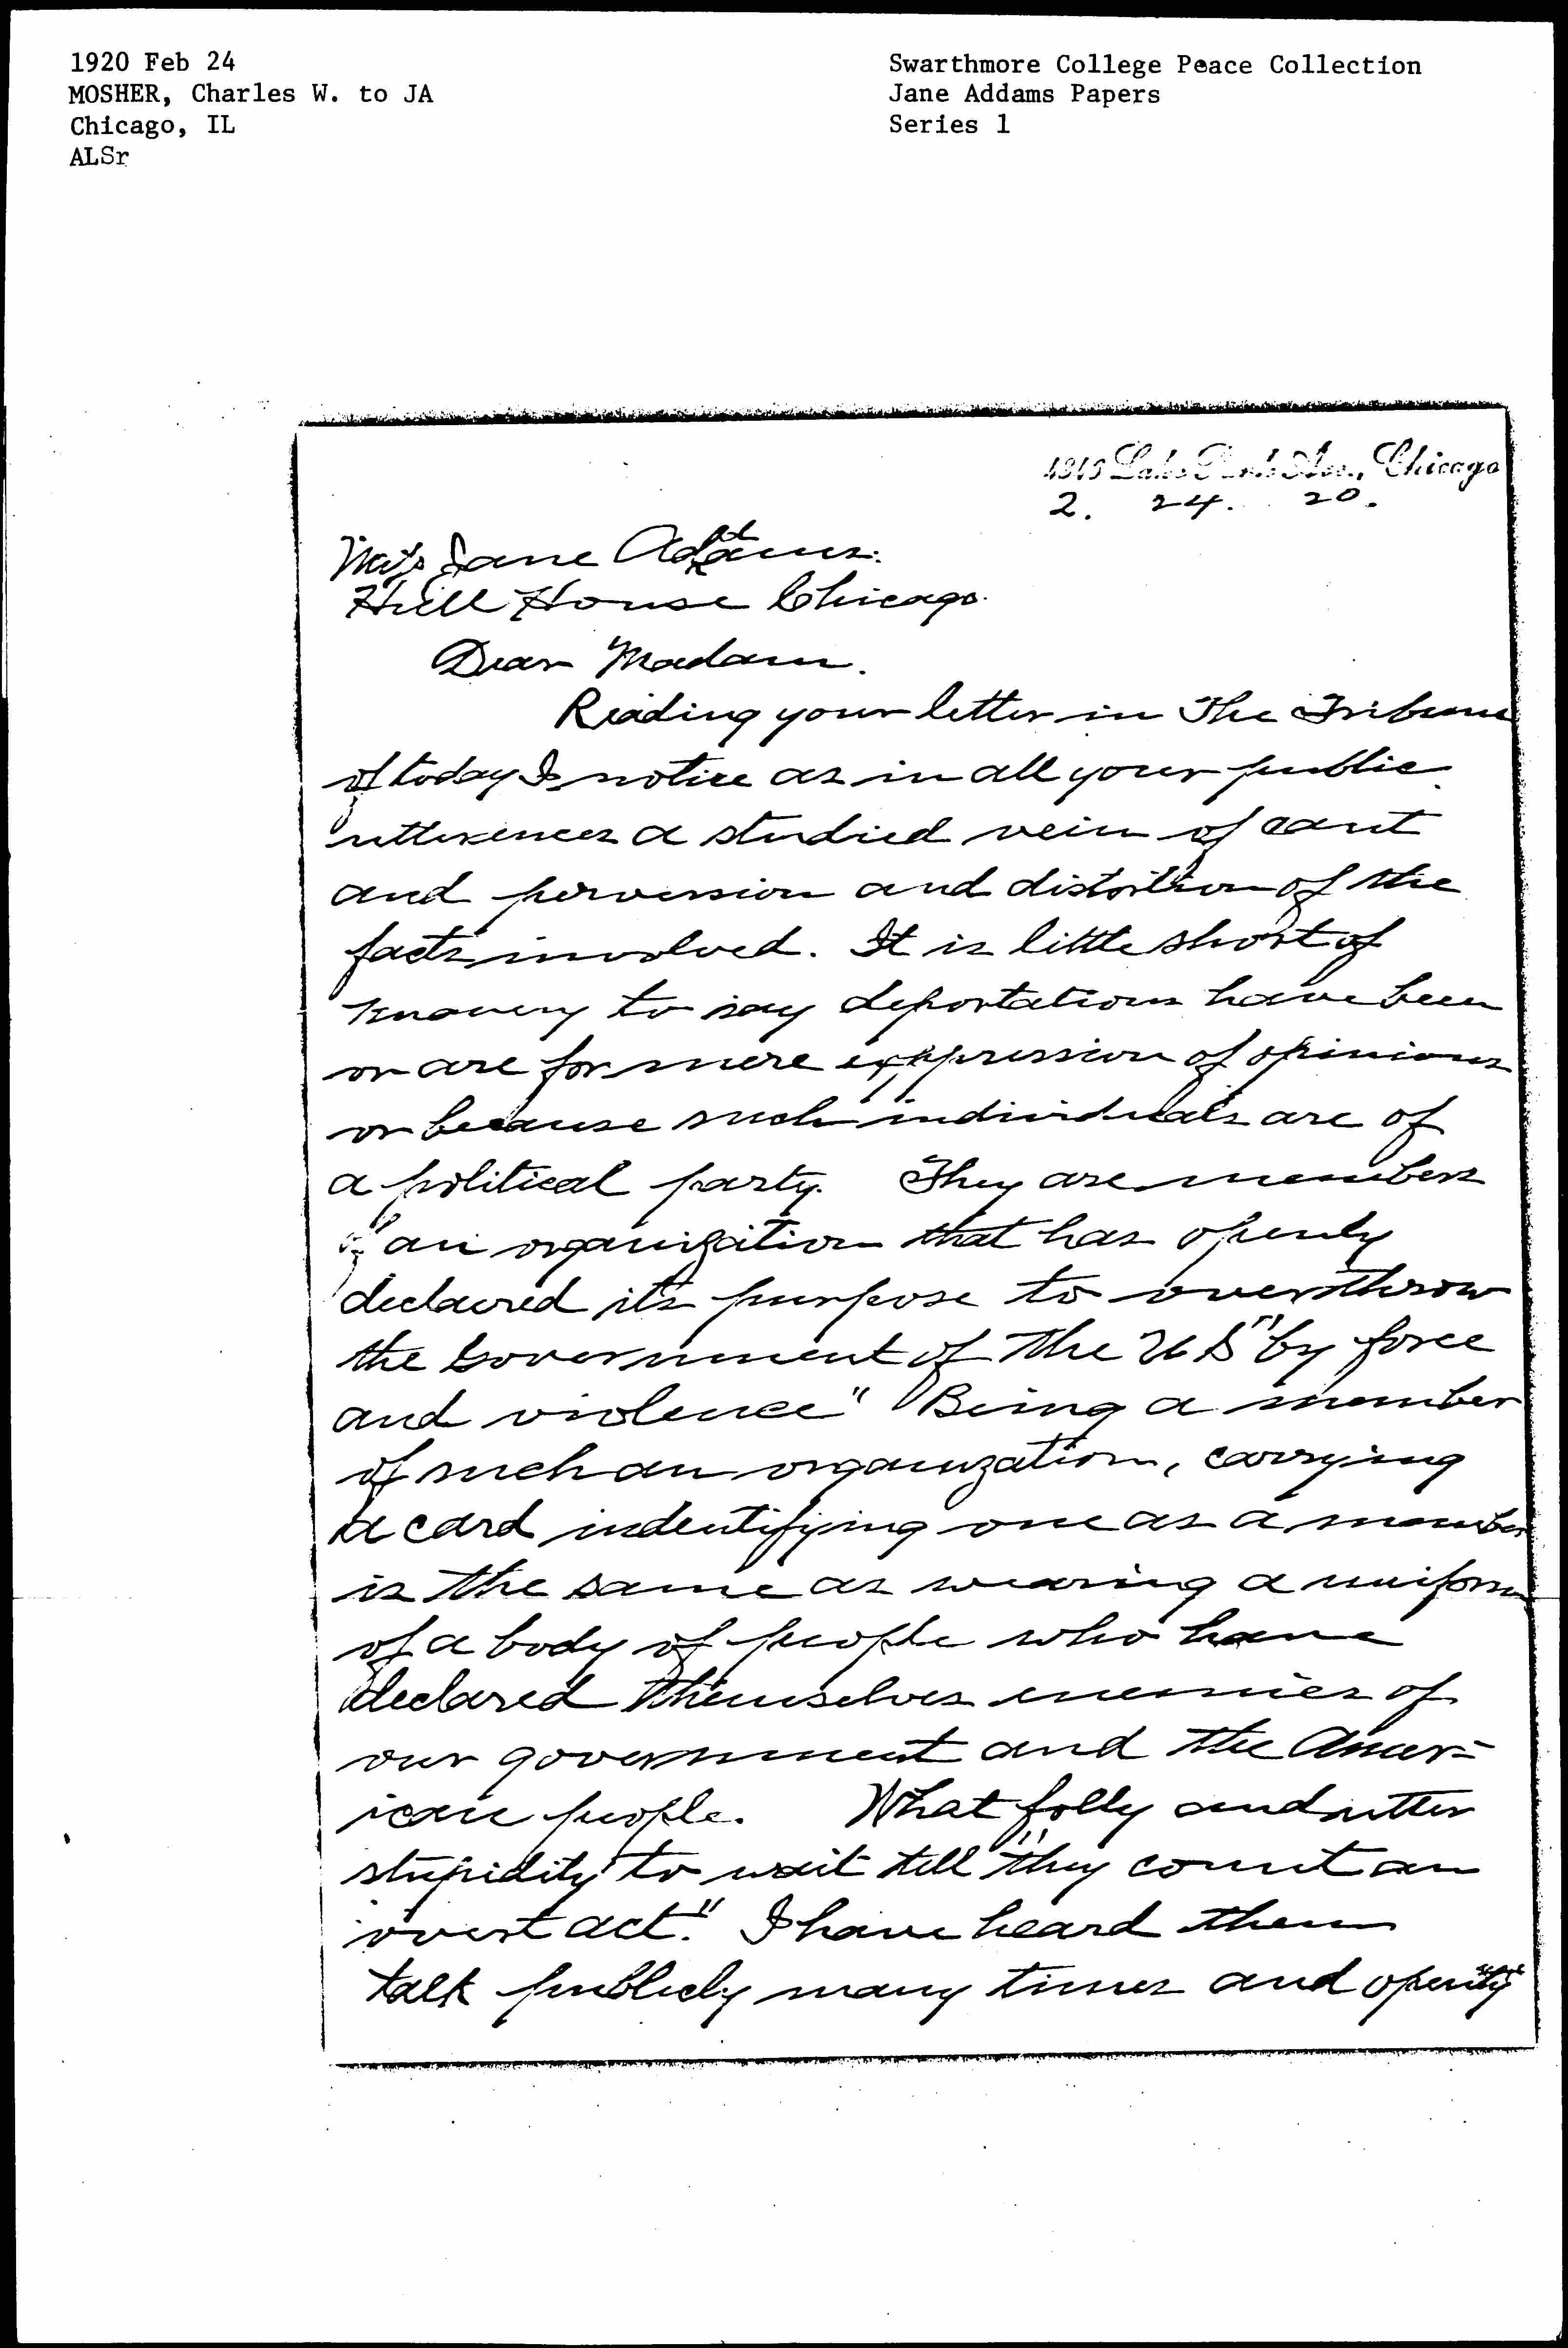 1920 Feb 24
MOSHER, Charles W. to JA
Chicago, IL
ALSr
Swarthmore College Peace Collection
Jane Addams Papers
Series 1
Chicago
2. 24. 20.
Miss Jane Addams.
Hull House Chicago.
Dear Madam.
Reading your letter in The Tribune
of today I notice as in all your public
utterences a studied vein of cant
and perversion and distortion of the
facts involved. It is little short of
knavery to say deportations have been
or are for mere expression of opinions
or because such individuals are of
a political party. They are members
of an organization that has openly
declared its purpose to overthrow
the Government of the U S "by force
and violence" Being a member
of such an organization, carrying
a card indentifying one as a member
is the same as wearing a uniform
of a body of people who have
declared themselves enemies of
our government and the Amer-
ican people. What folly and utter
stupidity to wait till "they comit an
overt act." I have heard them
talk publicly many times and openly